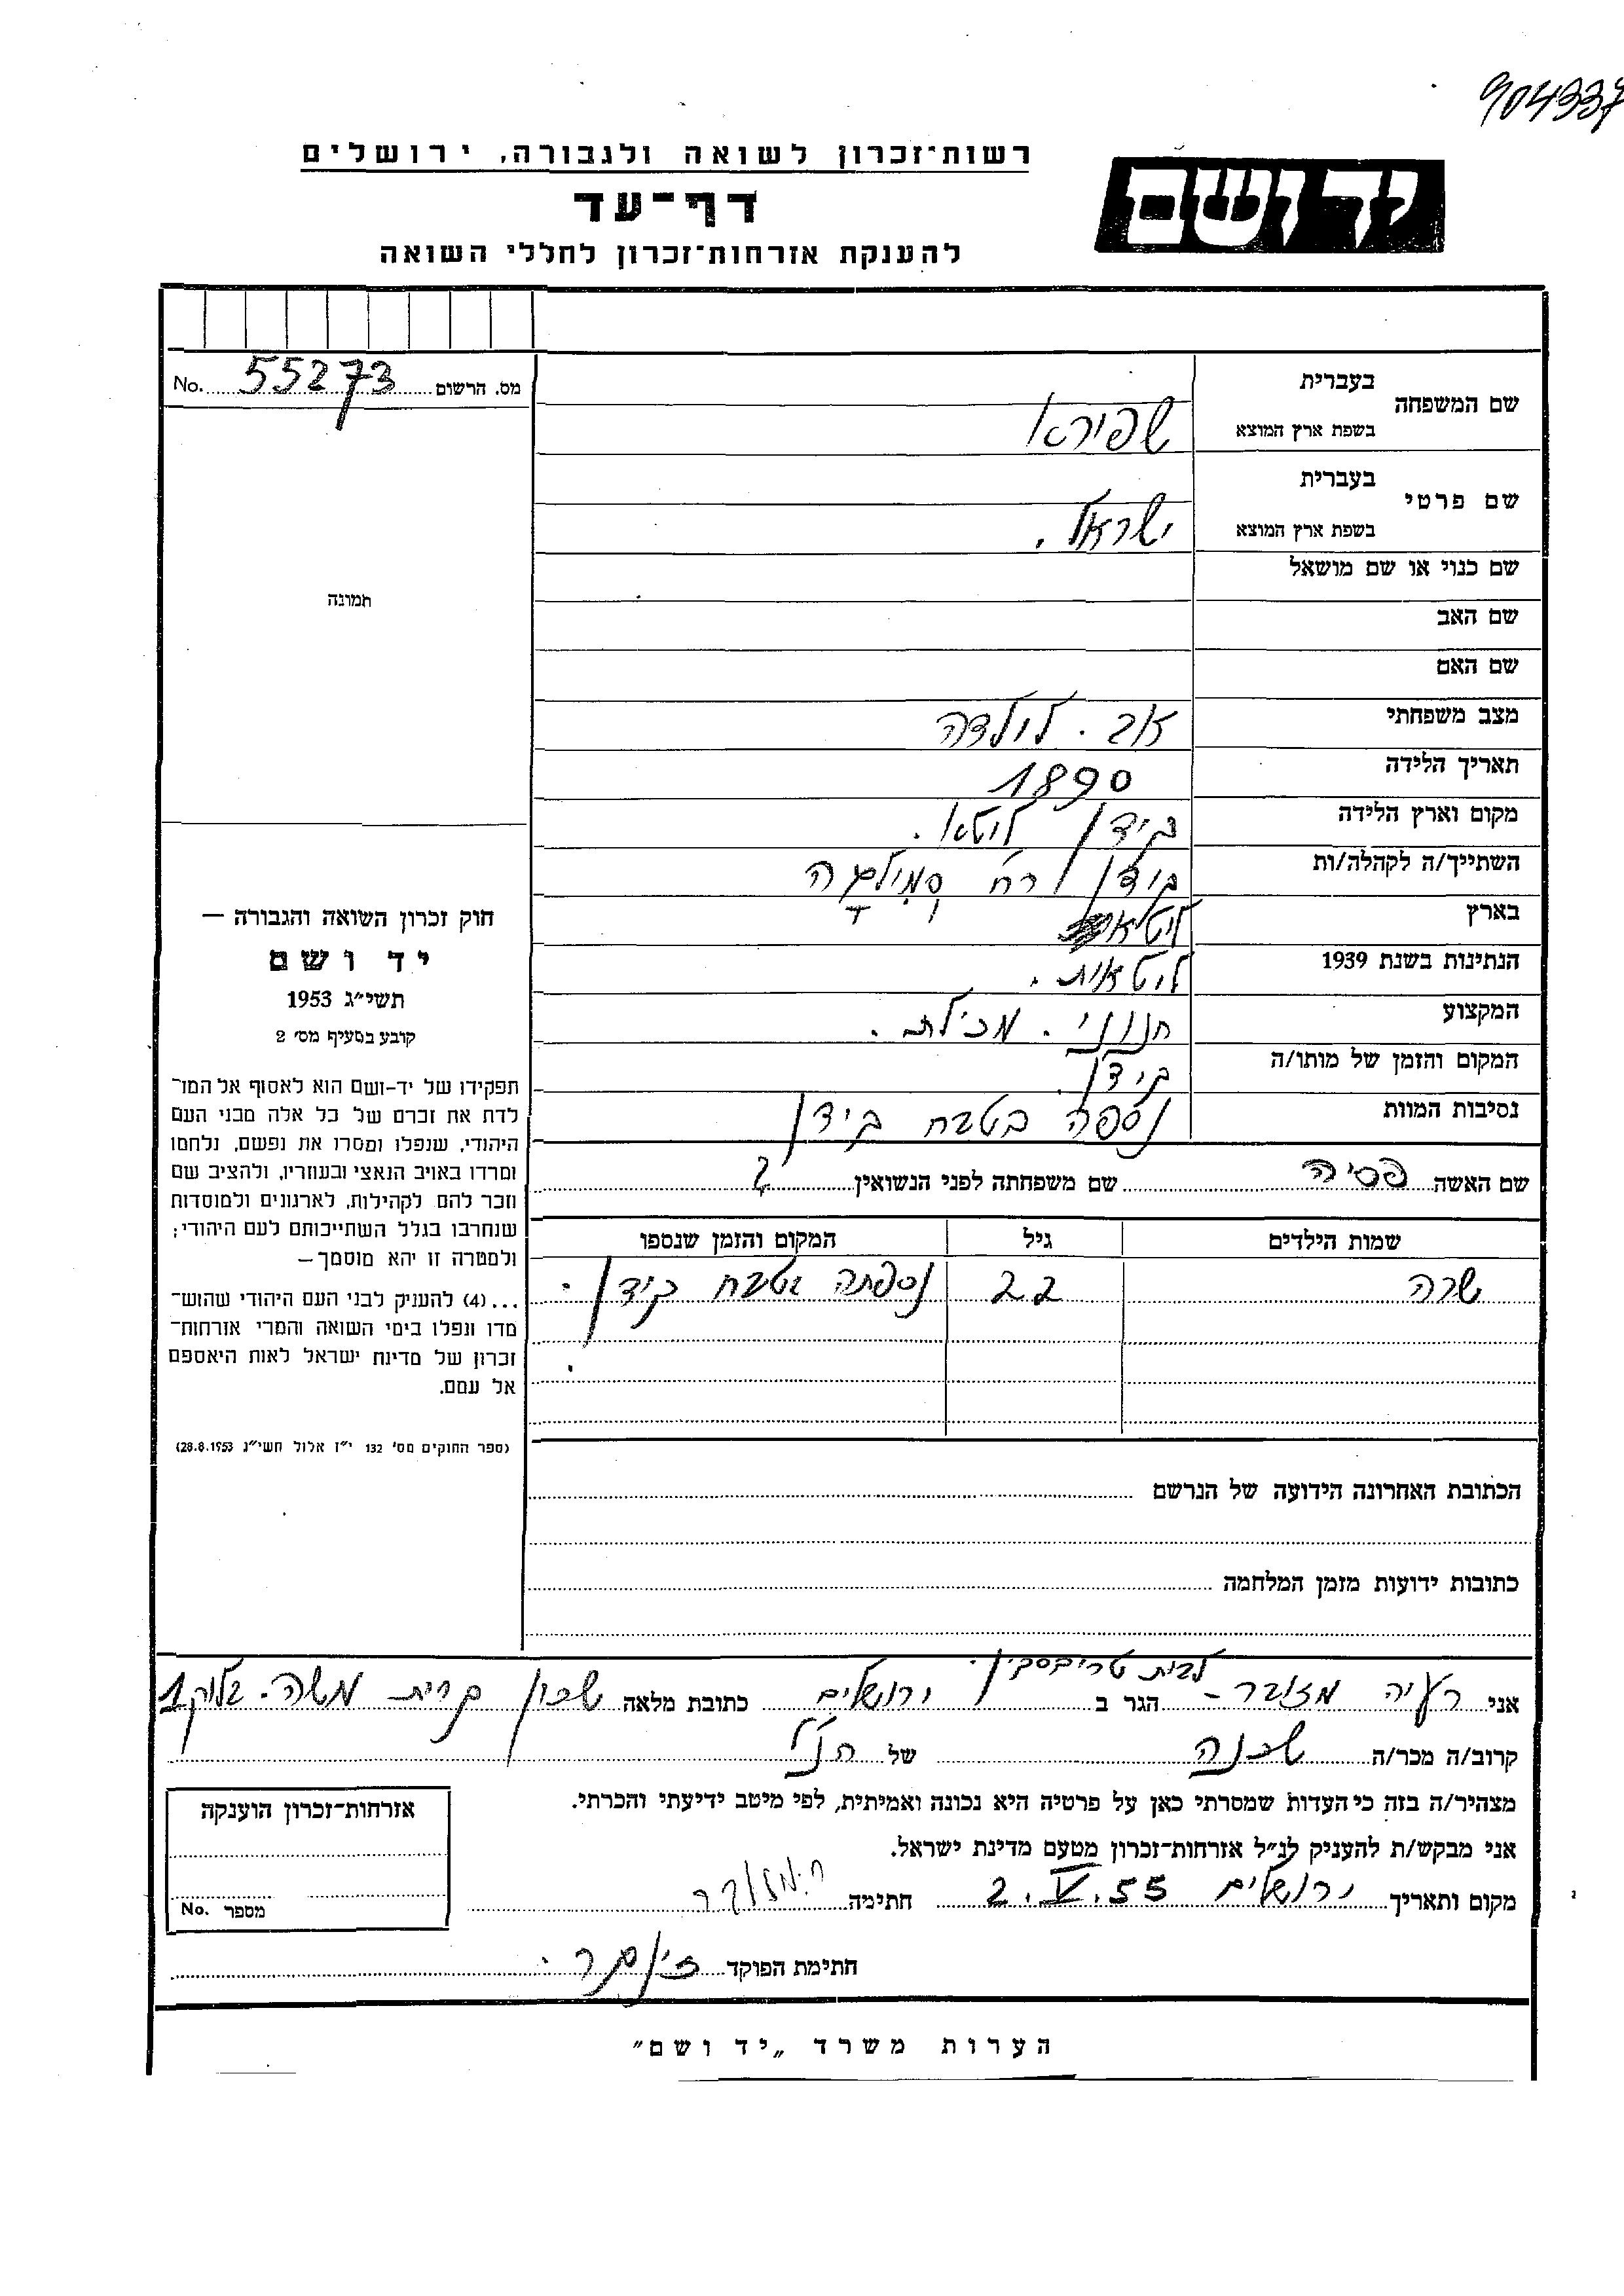 904337
רשות־זכרון לשואה ולגבורה, ירושלים
יד ושם
דף־עד
להענקת אזרחות־זכרון לחללי השואה
מס. הרשום 55273 No.
תמונה
חוק זכרון השואה והגבורה —
יד ושם
תשי״ג 1953
קובע בסעיף מס׳ 2
תפקידו של יד-ושם הוא לאסוף אל המו־
לדת את זכרם של כל אלה מבני העם
היהודי, שנפלו ומסרו את נפשם, נלחמו
ומרדו באויב הנאצי ובעוזריו, ולהציב שם
וזכר להם לקהילות, לארגונים ולמוסדות
שנחרבו בגלל השתייכותם לעם היהודי;
ולמטרה זו יהא מוסמך—
...(4) להעניק לבני העם היהודי שהוש־
מדו ונפלו בימי השואה והמרי אזרחות־
זכרון של מדינת ישראל לאות היאספם
אל עמם.
(ספר החוקים מס׳ 132 י״ז אלול תשי״ג 28.8.1953)
שם המשפחה בעברית
בשפת ארץ המוצא שפירא
שם פרטי בעברית
בשפת ארץ המוצא ישראל.
שם כנוי או שם מושאל
שם האב
שם האם
מצב משפחתי אב. לילדה
תאריך הלידה 1890
מקום וארץ הלידה קידן ליטא.
השתייך/ה לקהלה/ות קידן רח׳
בארץ ליטא
הנתינות בשנת 1939 ליטאית.
המקצוע חנוני. מכולת.
המקום והזמן של מותו/ה קידן.
נסיבות המוות נספה בטבח קידן
שם האשה פסיה שם משפחתה לפני הנשואין ?
שמות הילדים גיל המקום והזמן שנספו
שרה 22 נספתה בטבח קידן.
הכתובת האחרונה הידועה של הנרשם
כתובות ידועות מזמן המלחמה
לבית
אני רעיה הגר ב ירושלים כתובת מלאה שכון קרית משה. בלוק 1
קרוב/ה מכר/ה שכנה של הנ״ל
מצהיר/ה בזה כי העדות שמסרתי כאן על פרטיה היא נכונה ואמיתית, לפי מיטב ידיעתי והכרתי.
אני מבקש/ת להעניק לנ״ל אזרחות־זכרון מטעם מדינת ישראל.
מקום ותאריך ירושלים 2.V.55 חתימה
חתימת הפוקד
אזרחות־זכרון הוענקה
מספר No.
הערות משרד „יד ושם״